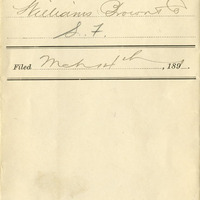 Williams Brown & Co
S. F.
Filed Mch 4th, 189